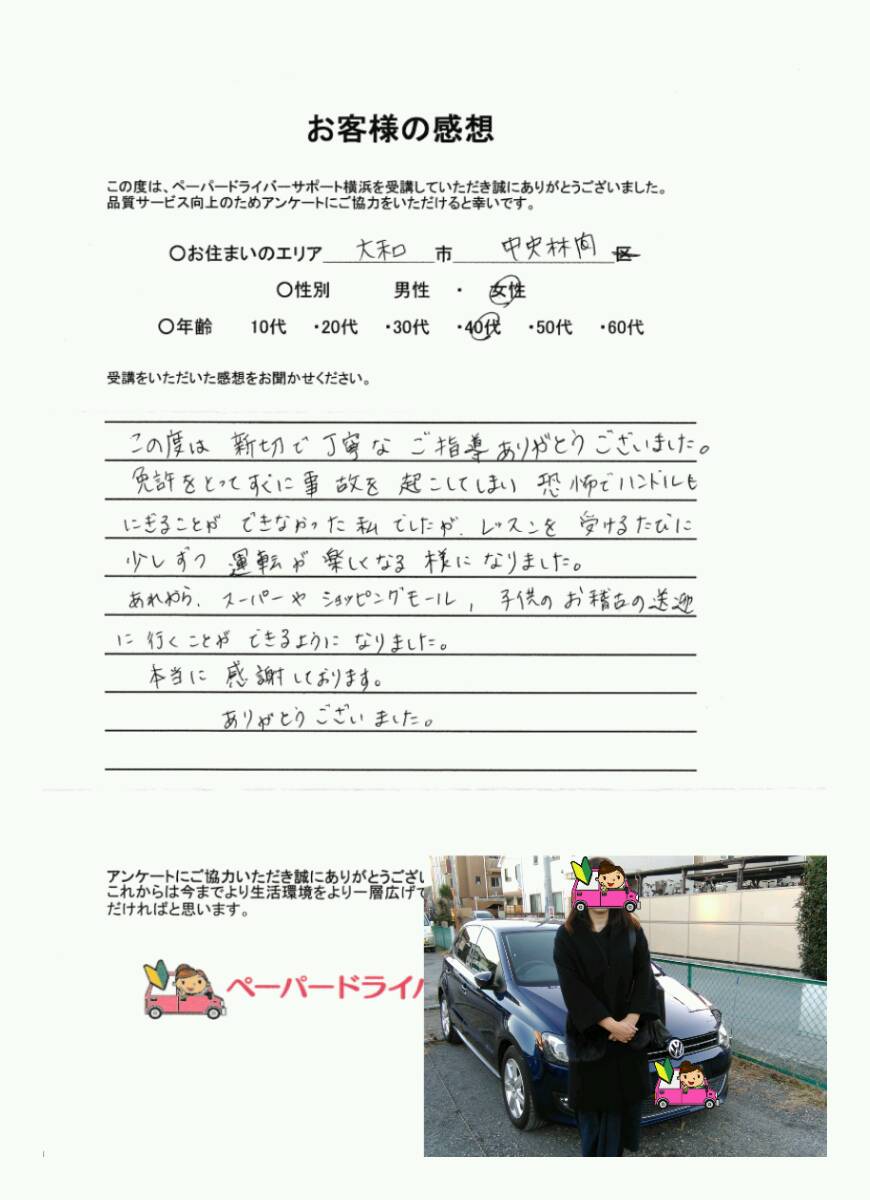 お客様の感想
この度は、ペーパードライバーサポート横浜を受講していただき誠にありがとうございました。
品質サービス向上のためアンケートにご協力をいただけると幸いです。
〇お住まいのエリア 大和 市 中央林間 区
〇性別 男性 ・ 女性
〇年齢 10代 ・20代 ・30代 ・40代 ・50代 ・60代
受講をいただいた感想をお聞かせください。
この度は 新切で丁寧な ご指導ありがとうございました。
免許をとってすぐに事故を 起こしてしまい 恐怖でハンドルも
にぎることが できなかった私でしたが、レッスンを 受けるたびに
少しずつ 運転が楽しくなる 様になりました。
あれから、スーパーや ショッピングモール, 子供のお稽古の送迎
に行くことが できるようになりました。
本当に 感謝しております。
ありがとうございました。
アンケートにご協力いただき誠にありがとうござい
これからは今までより生活環境をより一層広げて
だければと思います。
ペーパードライバ